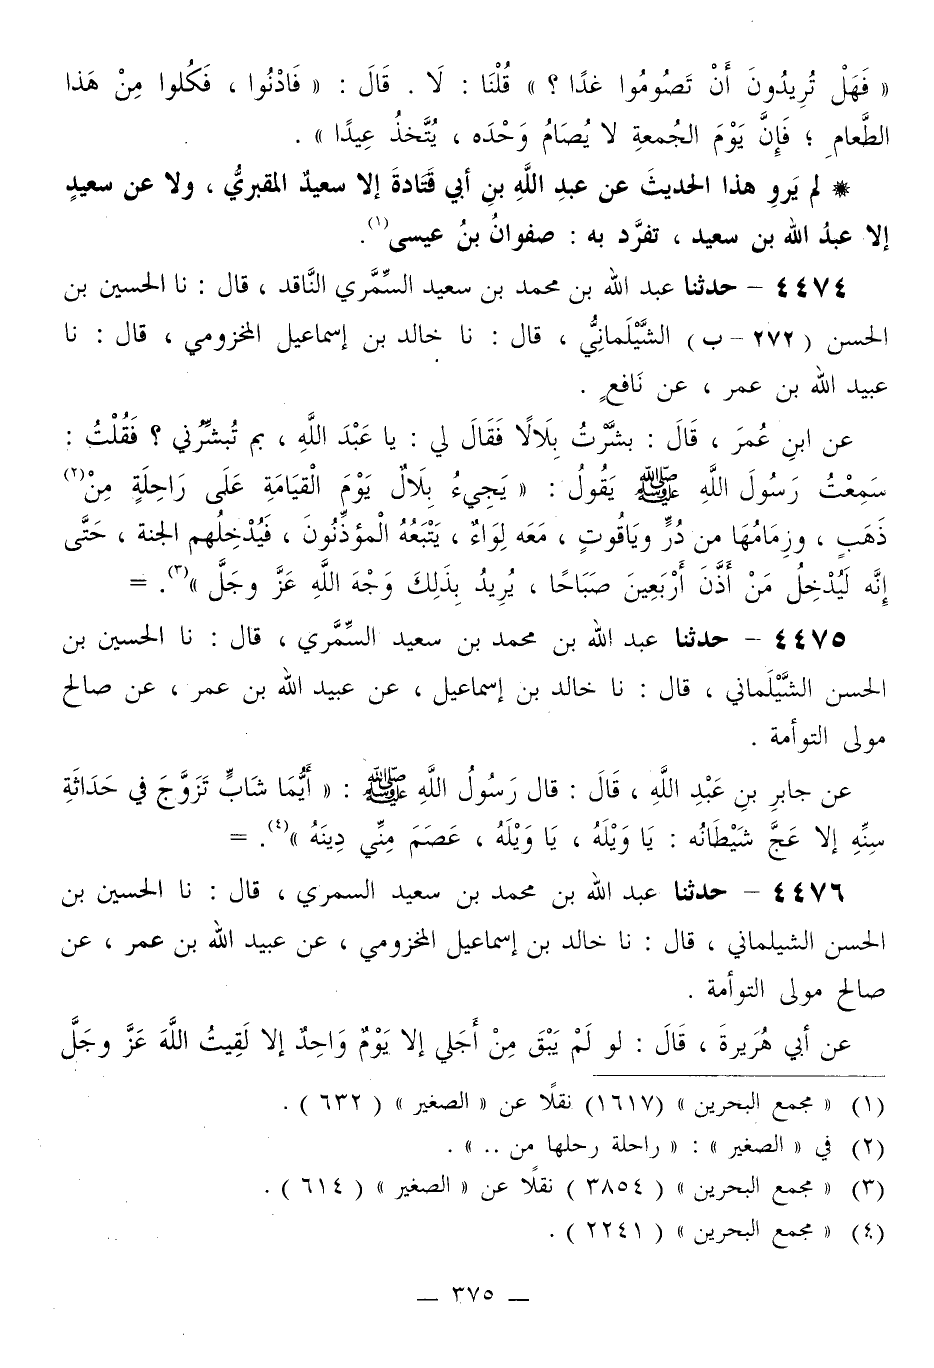 « فَهَلْ تُرِيدُونَ أَنْ تَصُومُوا غدًا ؟ » قُلْنَا : لَا . قَالَ : « فَادْنُوا ، فَكُلوا مِنْ هَذا
الطَّعامِ ؛ فَإِنَّ يَوْمَ الجُمعةِ لا يُصَامُ وَحْدَه ، يُتَّخذُ عِيدًا » .
* لم يَروِ هذا الحديثَ عن عبدِ اللَّهِ بنِ أبي قَتَادةَ إلا سعيدٌ المقبريُّ ، ولا عن سعيدٍ
إلا عبدُ الله بن سعيد ، تفرَّد به : صفوانُ بنُ عيسى(١).
٤٤٧٤ - حدثنا عبد الله بن محمد بن سعيد السِّمَّري النَّاقد ، قال : نا الحسين بن
الحسن ( ٢٧٢ - ب ) الشَّيْلَمانِيُّ ، قال : نا خالد بن إسماعيل المخزومي ، قال : نا
عبيد الله بن عمر ، عن نَافعٍ .
عن ابنِ عُمرَ ، قَالَ : بشَّرْتُ بِلَالًا فَقَالَ لي : يا عَبْدَ اللَّهِ ، بم تُبشِّرُني ؟ فَقُلْتُ :
سَمِعْتُ رَسُولَ اللَّهِ ﷺ يَقُولُ : « يَجِيءُ بِلَالٌ يَوْمَ الْقيَامَةِ عَلَى رَاحِلَةٍ مِنْ(٢)
ذَهَبٍ ، وزِمَامُهَا من دُرٍّ ويَاقُوتٍ ، مَعَه لِوَاءٌ ، يَتْبَعُهُ الْمؤذِّنُونَ ، فَيُدْخِلُهم الجنة ، حَتَّى
إِنَّه لَيُدْخِلُ مَنْ أَذَّنَ أَرْبَعِينَ صَبَاحًا ، يُرِيدُ بِذَلِكَ وَجْهَ اللَّهِ عَزَّ وجَلَّ »(٣). =
٤٤٧٥ - حدثنا عبد الله بن محمد بن سعيد السِّمَّري ، قال : نا الحسين بن
الحسن الشَّيْلَماني ، قال : نا خالد بن إسماعيل ، عن عبيد الله بن عمر ، عن صالح
مولى التوأمة .
عن جابرِ بنِ عَبْدِ اللَّهِ ، قَالَ : قال رَسُولُ اللَّهِ ﷺ : « أَيُّمَا شَابٍّ تَزَوَّجَ في حَدَاثَةِ
سِنِّهِ إلا عَجَّ شَيْطَانُه : يَا وَيْلَهُ ، يَا وَيْلَهُ ، عَصَمَ مِنِّي دِينَهُ »(٤). =
٤٤٧٦ - حدثنا عبد الله بن محمد بن سعيد السمري ، قال : نا الحسين بن
الحسن الشيلماني ، قال : نا خالد بن إسماعيل المخزومي ، عن عبيد الله بن عمر ، عن
صالح مولى التوأمة .
عن أبي هُرَيرةَ ، قَالَ : لو لَمْ يَبْقَ مِنْ أَجَلي إلا يَوْمٌ وَاحِدٌ إلا لَقِيتُ اللَّهَ عَزَّ وجَلَّ
(١) « مجمع البحرين » (١٦١٧) نقلًا عن « الصغير » ( ٦٣٢ ) .
(٢) في « الصغير » : « راحلة رحلها من .. » .
(٣) « مجمع البحرين » ( ٣٨٥٤ ) نقلًا عن « الصغير » ( ٦١٤ ) .
(٤) « مجمع البحرين » ( ٢٢٤١ ) .
— ٣٧٥ —